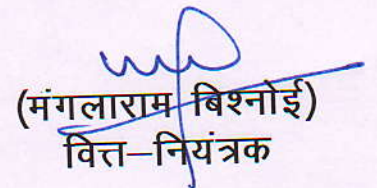 (मंगलाराम बिश्नोई)
वित्त–नियंत्रक